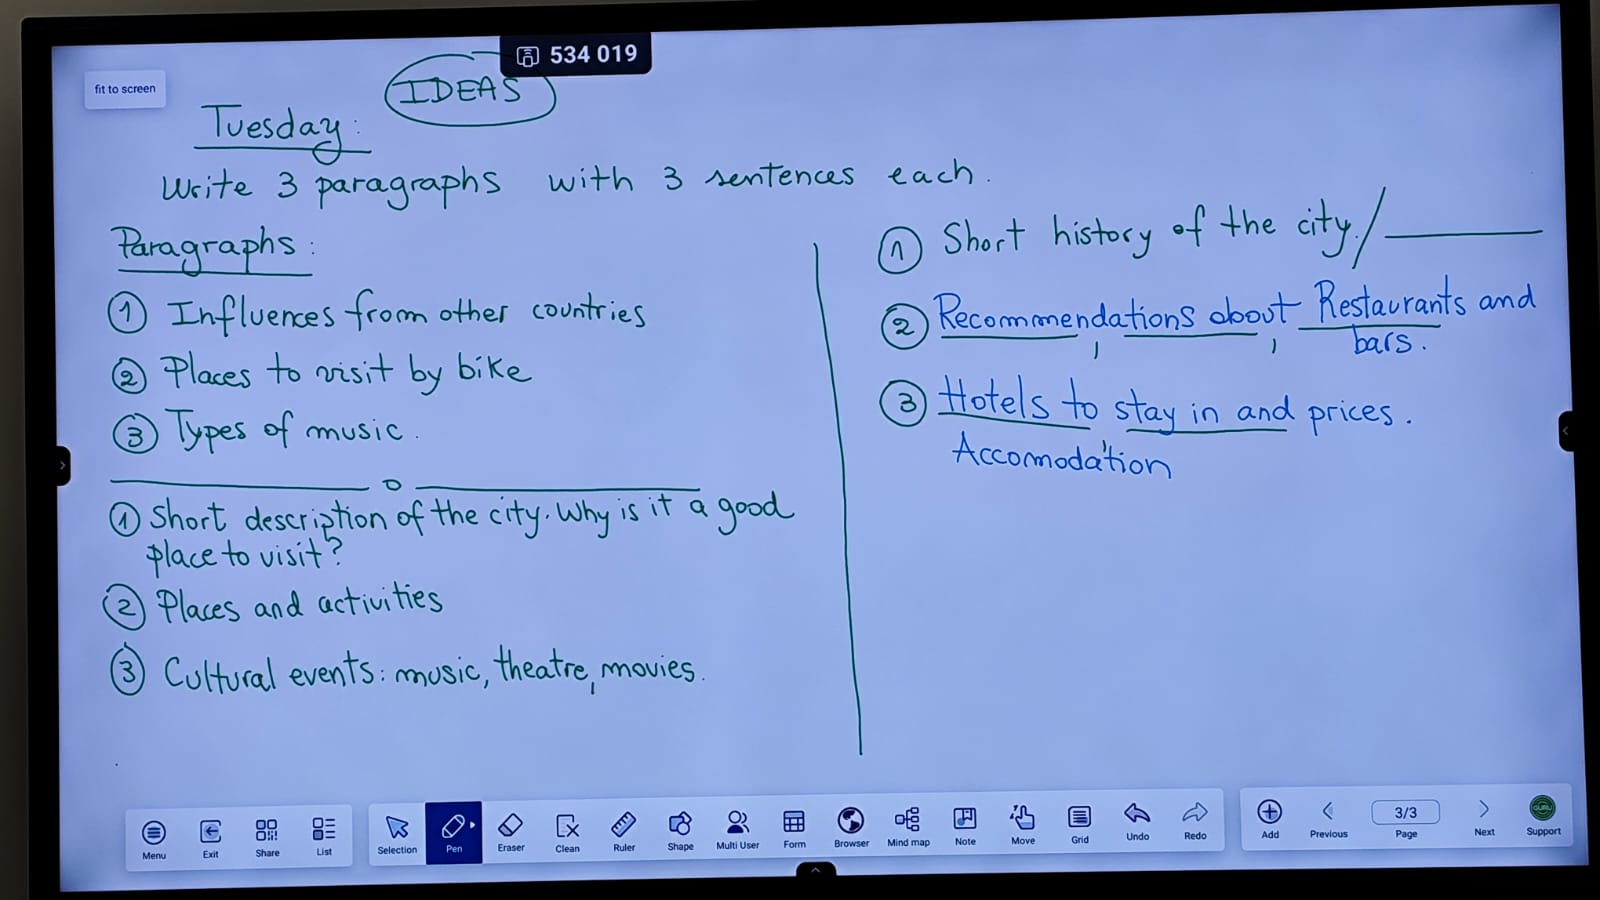 534 019
fit to screen
IDEAS
Tuesday:
Write 3 paragraphs with 3 sentences each.
Paragraphs:
1 Influences from other countries
2 Places to visit by bike
3 Types of music.
1 Short description of the city. Why is it a good
place to visit?
2 Places and activities
3 Cultural events: music, theatre, movies.
1 Short history of the city. /
2 Recommendations about Restaurants and
bars.
3 Hotels to stay in and prices.
Accomodation
Menu
Exit
Share
List
Selection
Pen
Eraser
Clean
Ruler
Shape
Multi User
Form
Browser
Mind map
Note
Move
Grid
Undo
Redo
Add
Previous
3/3
Page
Next
GURU
Support